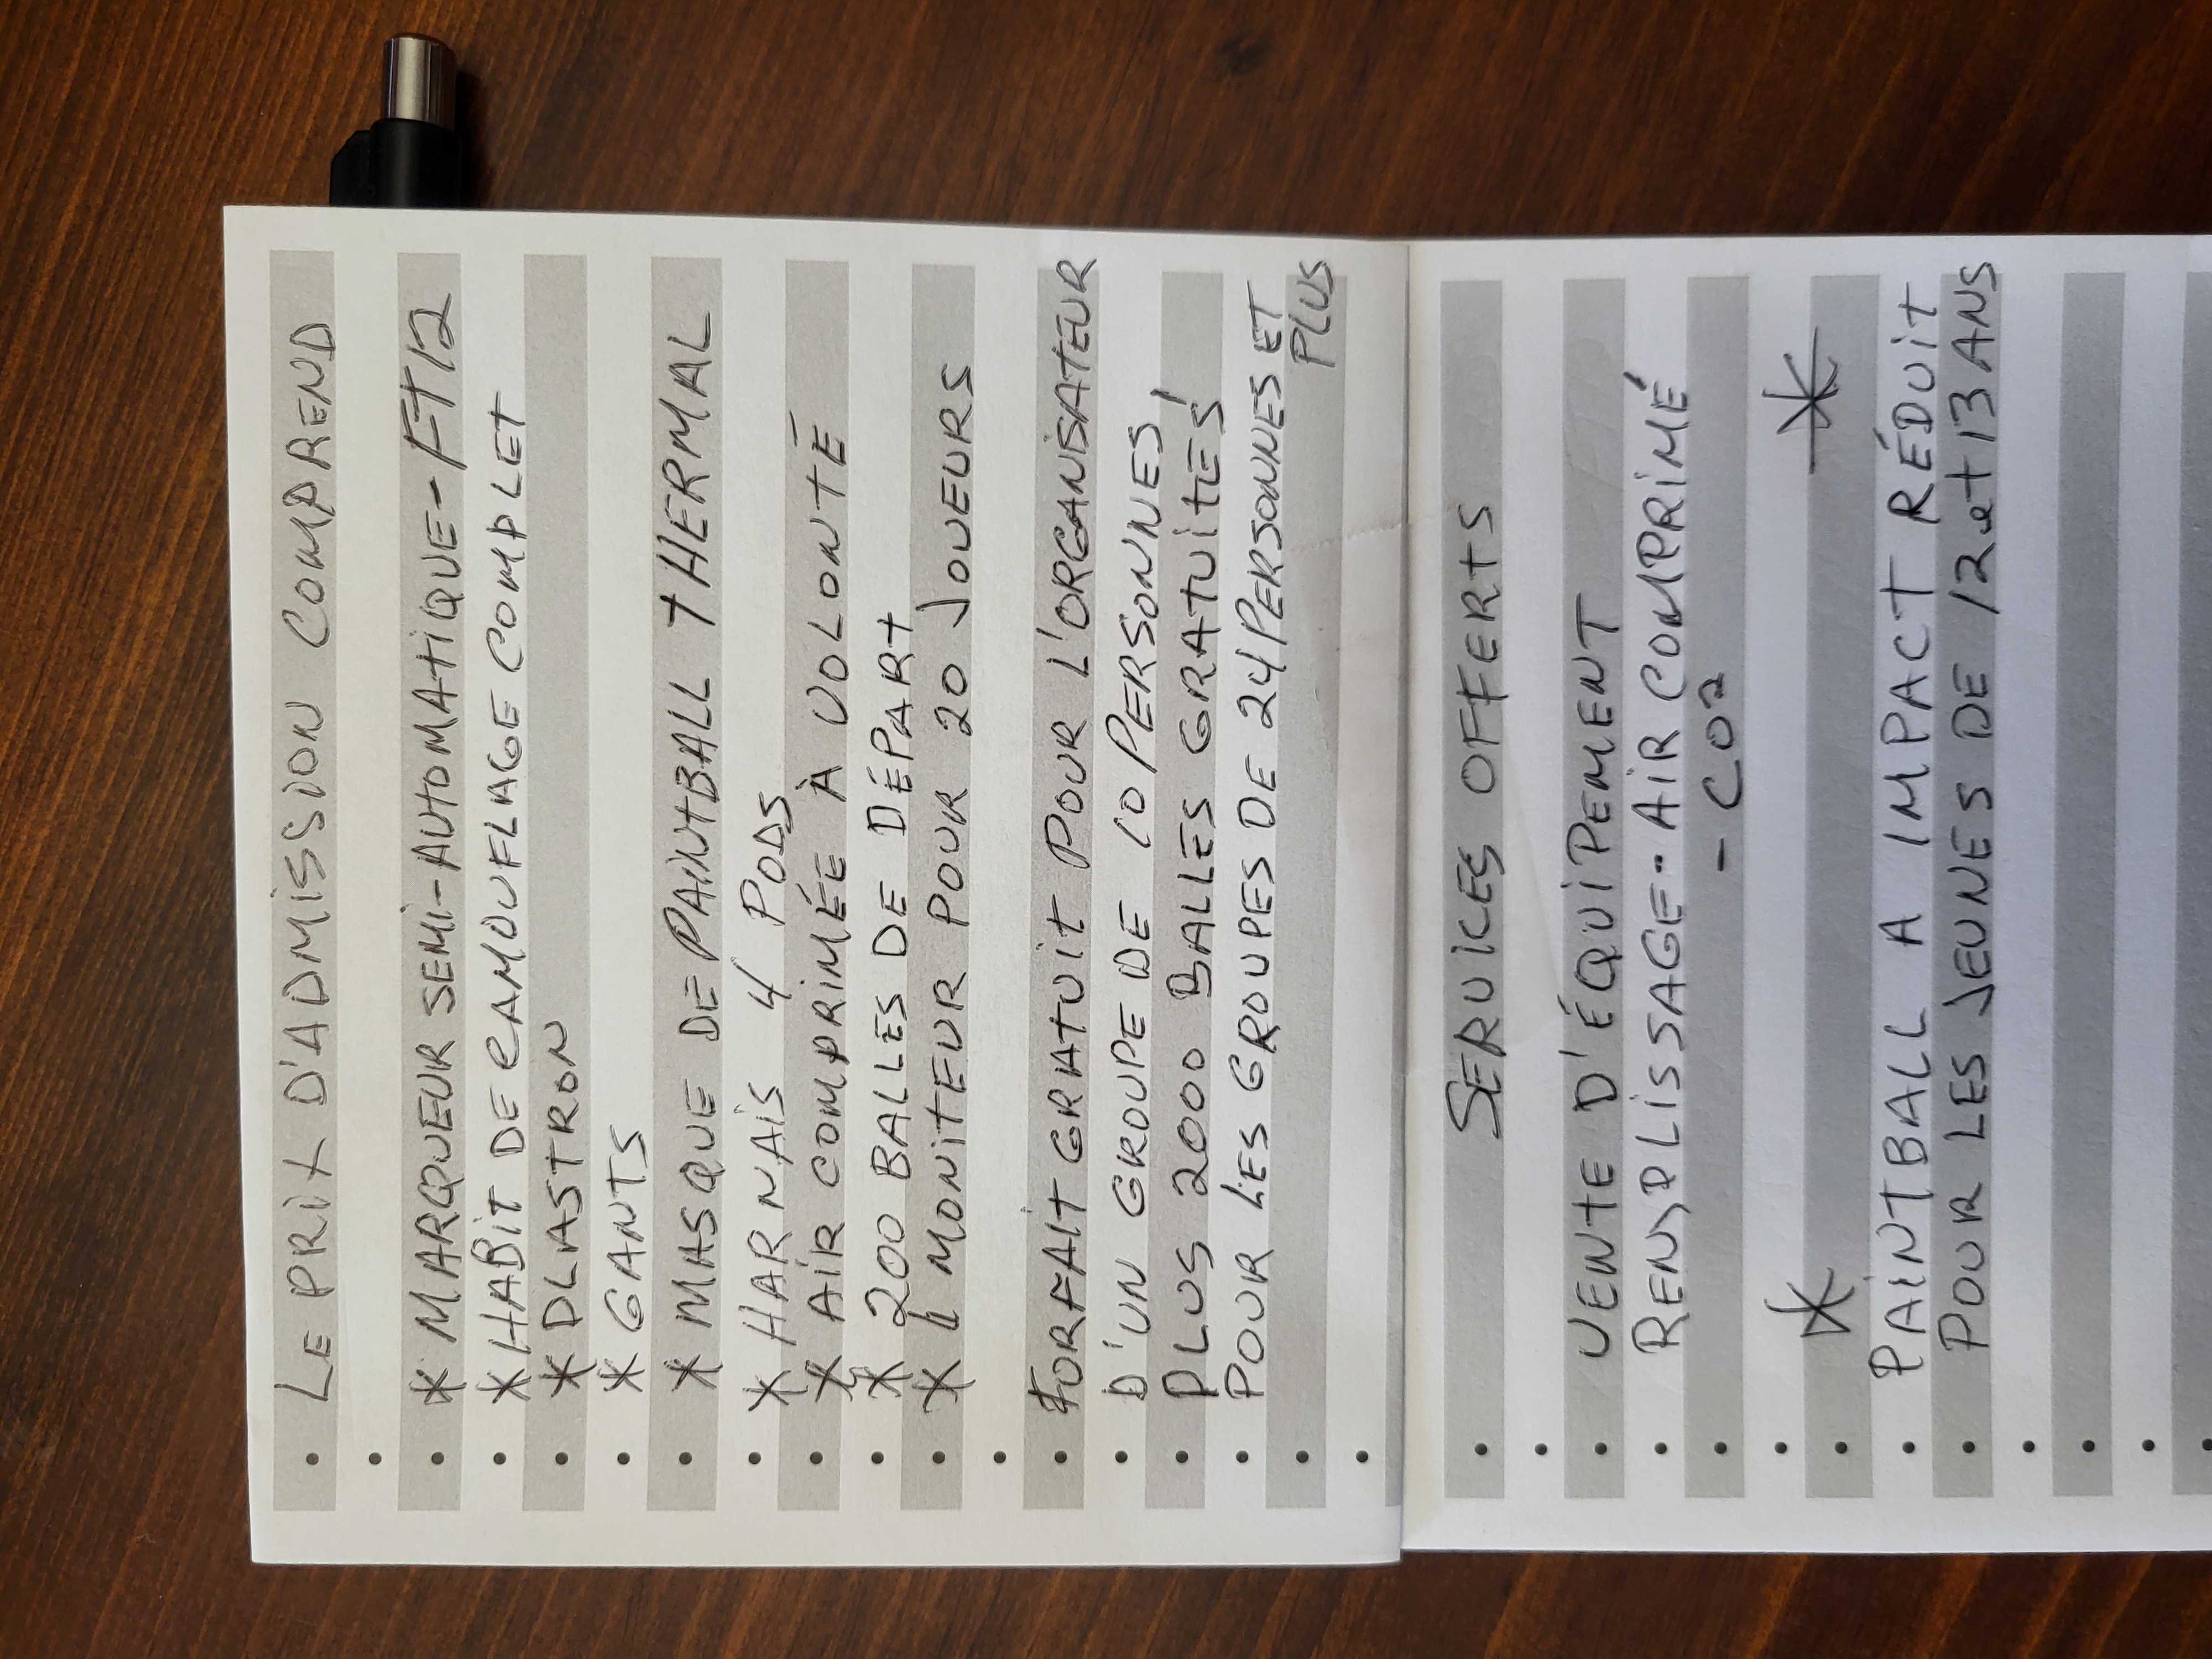 LE PRIX D'ADMISSION COMPREND
* MARQUEUR SEMI-AUTOMATIQUE - FT12
* HABIT DE CAMOUFLAGE COMPLET
* PLASTRON
* GANTS
* MASQUE DE PAINTBALL THERMAL
* HARNAIS 4 PODS
* AIR COMPRIMÉE À VOLONTÉ
* 200 BALLES DE DÉPART
* 1 MONITEUR POUR 20 JOUEURS
FORFAIT GRATUIT POUR L'ORGANISATEUR
D'UN GROUPE DE 10 PERSONNES,
PLUS 2000 BALLES GRATUITES
POUR LES GROUPES DE 24 PERSONNES ET
PLUS
SERVICES OFFERTS
VENTE D'ÉQUIPEMENT
REMPLISSAGE - AIR COMPRIMÉ
- CO2
* *
PAINTBALL A IMPACT RÉDUIT
POUR LES JEUNES DE 12 et 13 ANS